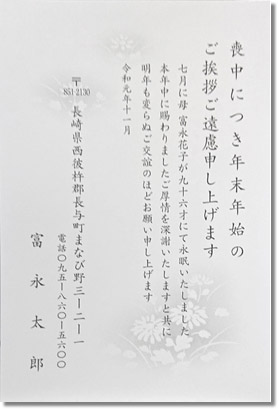 喪中につき年末年始の
ご挨拶ご遠慮申し上げます
七月に母 富永花子が九十六才にて永眠いたしました
本年中に賜わりましたご厚情を深謝いたしますと共に
明年も変らぬご交誼のほどお願い申し上げます
令和元年十一月
〒851-2130
長崎県西彼杵郡長与町まなび野三ー二ー一
電話〇九五ー八六〇ー五六〇〇
富永太郎